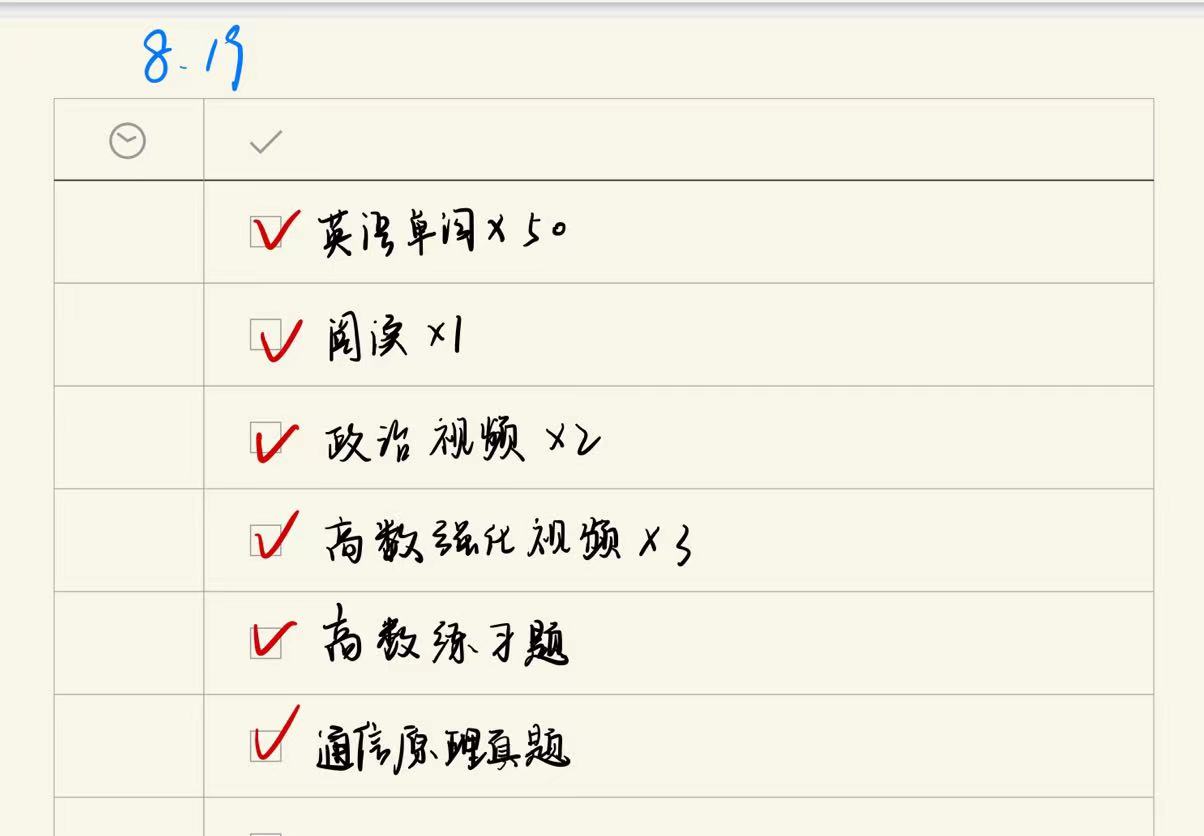 8.19
英语单词×50
阅读×1
政治视频×2
高数强化视频×3
高数练习题
通信原理真题